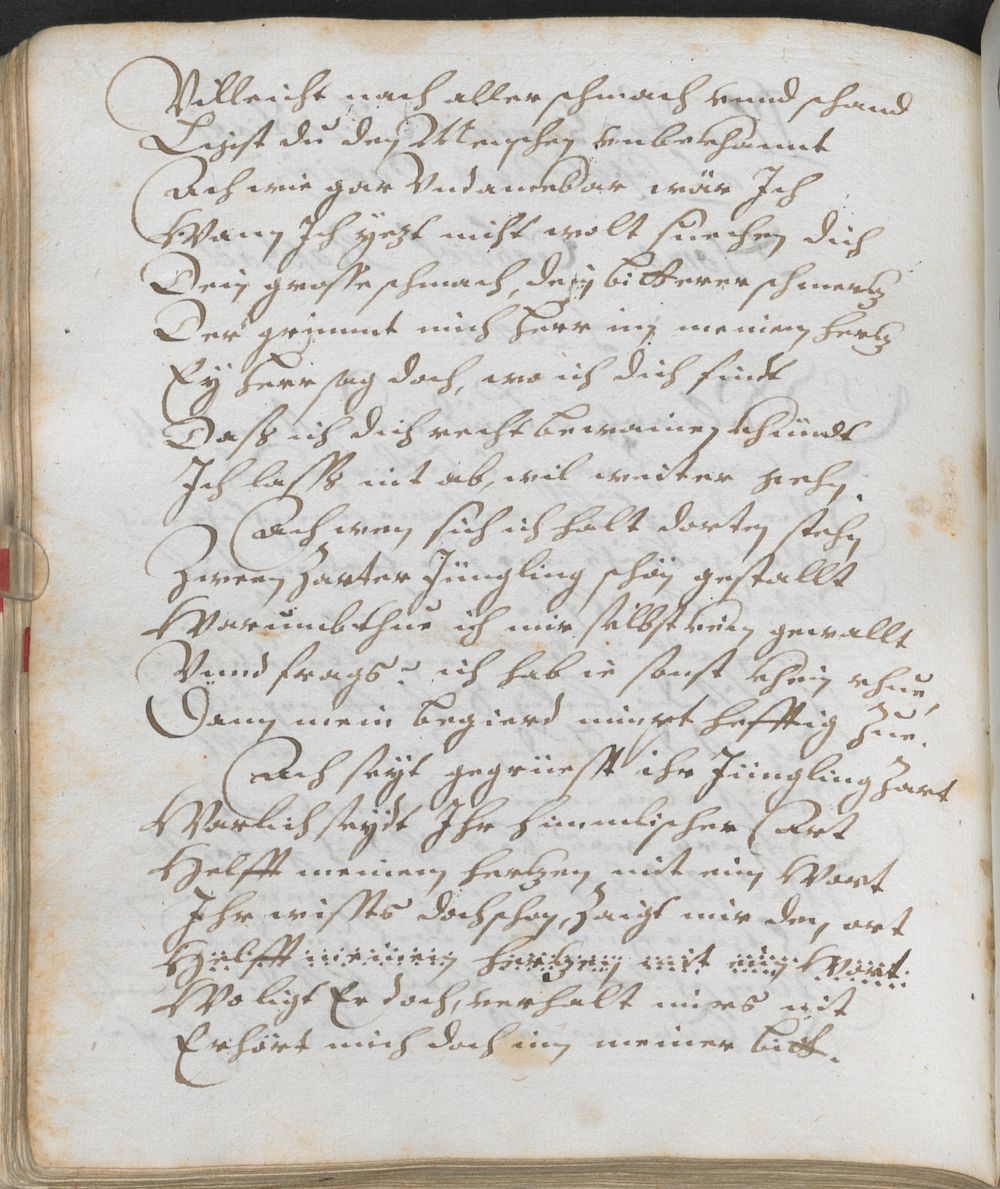 Villeicht nach aller schmach vnnd schand
Ligst du den Menschen vnbekhannt
Ach wie gar Vndanckbar wär Ich
Wann Ich yezt nicht wolt suechen dich
Dein grosse schmach, dein bitterer schmertz
Der grimmt mich Herr inn meinem hertz
Ey Herr sag doch, wo ich dich findt
Dasß ich dich recht bewainen khündt
Ich lasß nit ab, wil weiter gehn.
Ach wen sich ich halt dorten stehn
Zween Zarter Jüngling schön gestallt
Warumb thue ich mir selbst ein gewallt
Vnnd frags? ich hab ie sonst khein rhue,
Dann mein begierd nimbt hefftig zue.
Ach seyt gegrüesst ihr Jüngling Zart
Warlich seydt Ihr himmlischer Art
Helfft meinem hertzen mit eim Wort
Ihr wissts doch schon, Zaigt mir den ort
Helfft meinem hertzen mit eim Wort.
Wo ligt Er doch, verhalt mirs nit
Erhört mich doch inn meiner bitt.